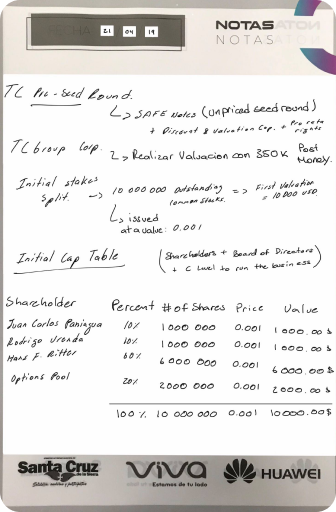 NOTAS
NOTAS
FECHA 21 04 19
TC Pre-Seed Round.
↳ SAFE Notes (Unpriced seed round)
+ Discount & Valuation Cap. + Pro rata rights
TC Group Corp.
↳ Realizar Valuacion con 350K Post Money.
Initial stakes Split. → 10 000 000 Outstanding common stocks. => First Valuation = 10 000 USD.
↳ issued at a value: 0.001
Initial Cap Table (Shareholders + Board of Directors + C Level to run the business)
Shareholder Percent # of Shares Price Value
Juan Carlos Paniagua 10% 1 000 000 0.001 1 000.00 $
Rodrigo Uronda 10% 1 000 000 0.001 1 000.00 $
Hans F. Ritter 60% 6 000 000 0.001 6 000.00 $
Options Pool 20% 2000 000 0.001 2 000.00 $
100 % 10 000 000 0.001 10 000.00 $
Santa Cruz
VIVA
Estamos de tu lado
HUAWEI